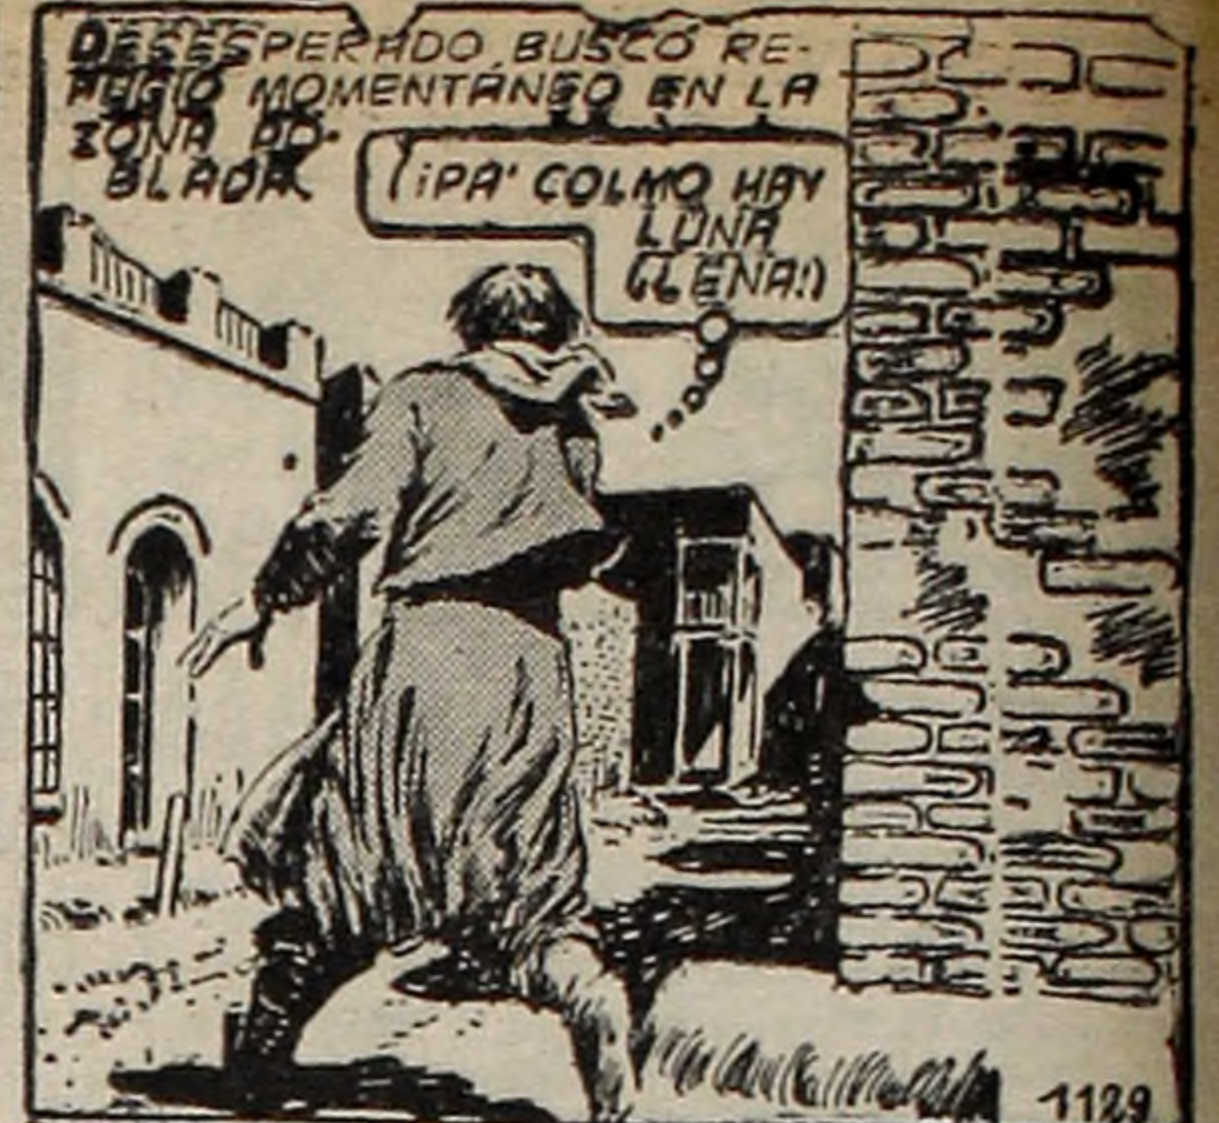 DESESPERADO, BUSCÓ RE-
FUGIO MOMENTÁNEO EN LA
ZONA PO-
BLADA.
(¡PA' COLMO HAY
LUNA
LLENA!)
1129